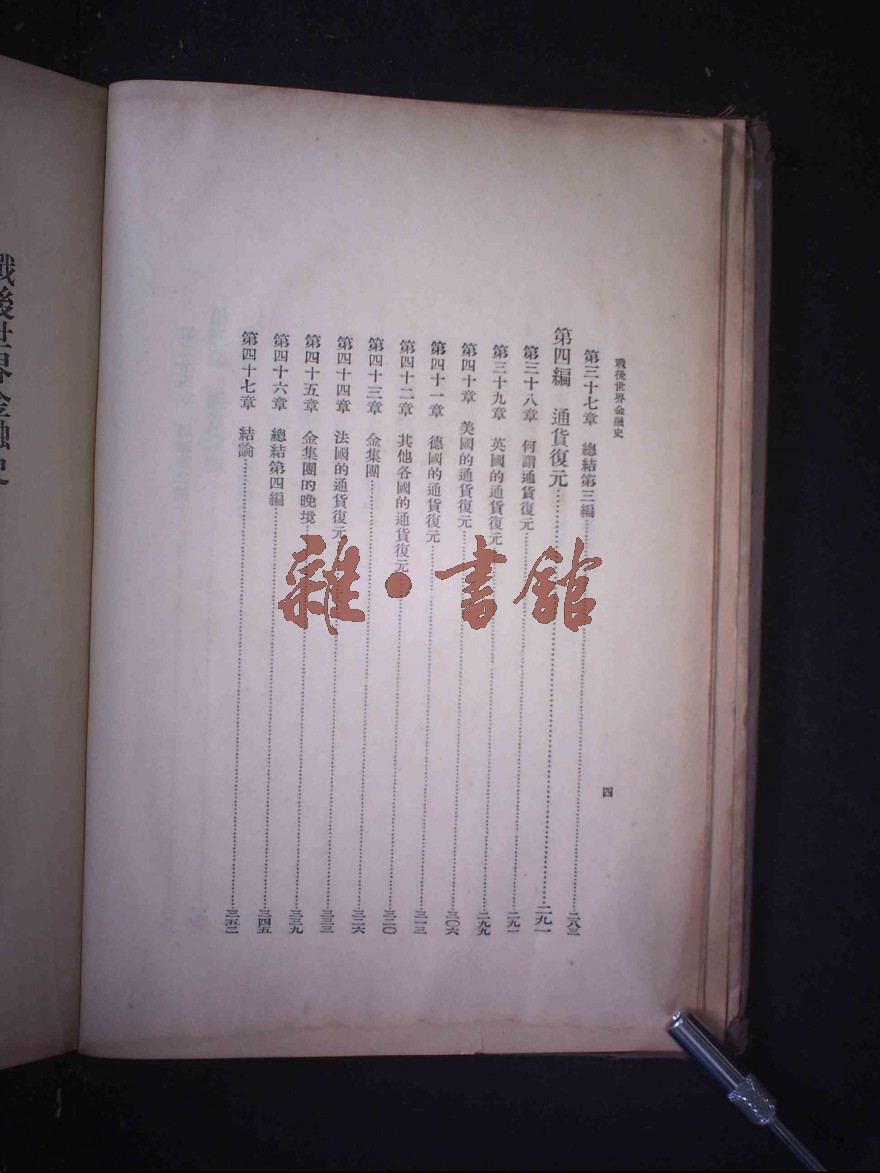 戰後世界金融史
第三十七章　總結第三編……二八三
第四編　通貨復元……二九一
第三十八章　何謂通貨復元……二九一
第三十九章　英國的通貨復元……二九九
第四十章　美國的通貨復元……三〇六
第四十一章　德國的通貨復元……三一三
第四十二章　其他各國的通貨復元……三二〇
第四十三章　金集團……三二六
第四十四章　法國的通貨復元……三三三
第四十五章　金集團的晚境……三三九
第四十六章　總結第四編……三四五
第四十七章　結論……三五二
四
雜·書館
戰後世界金融史